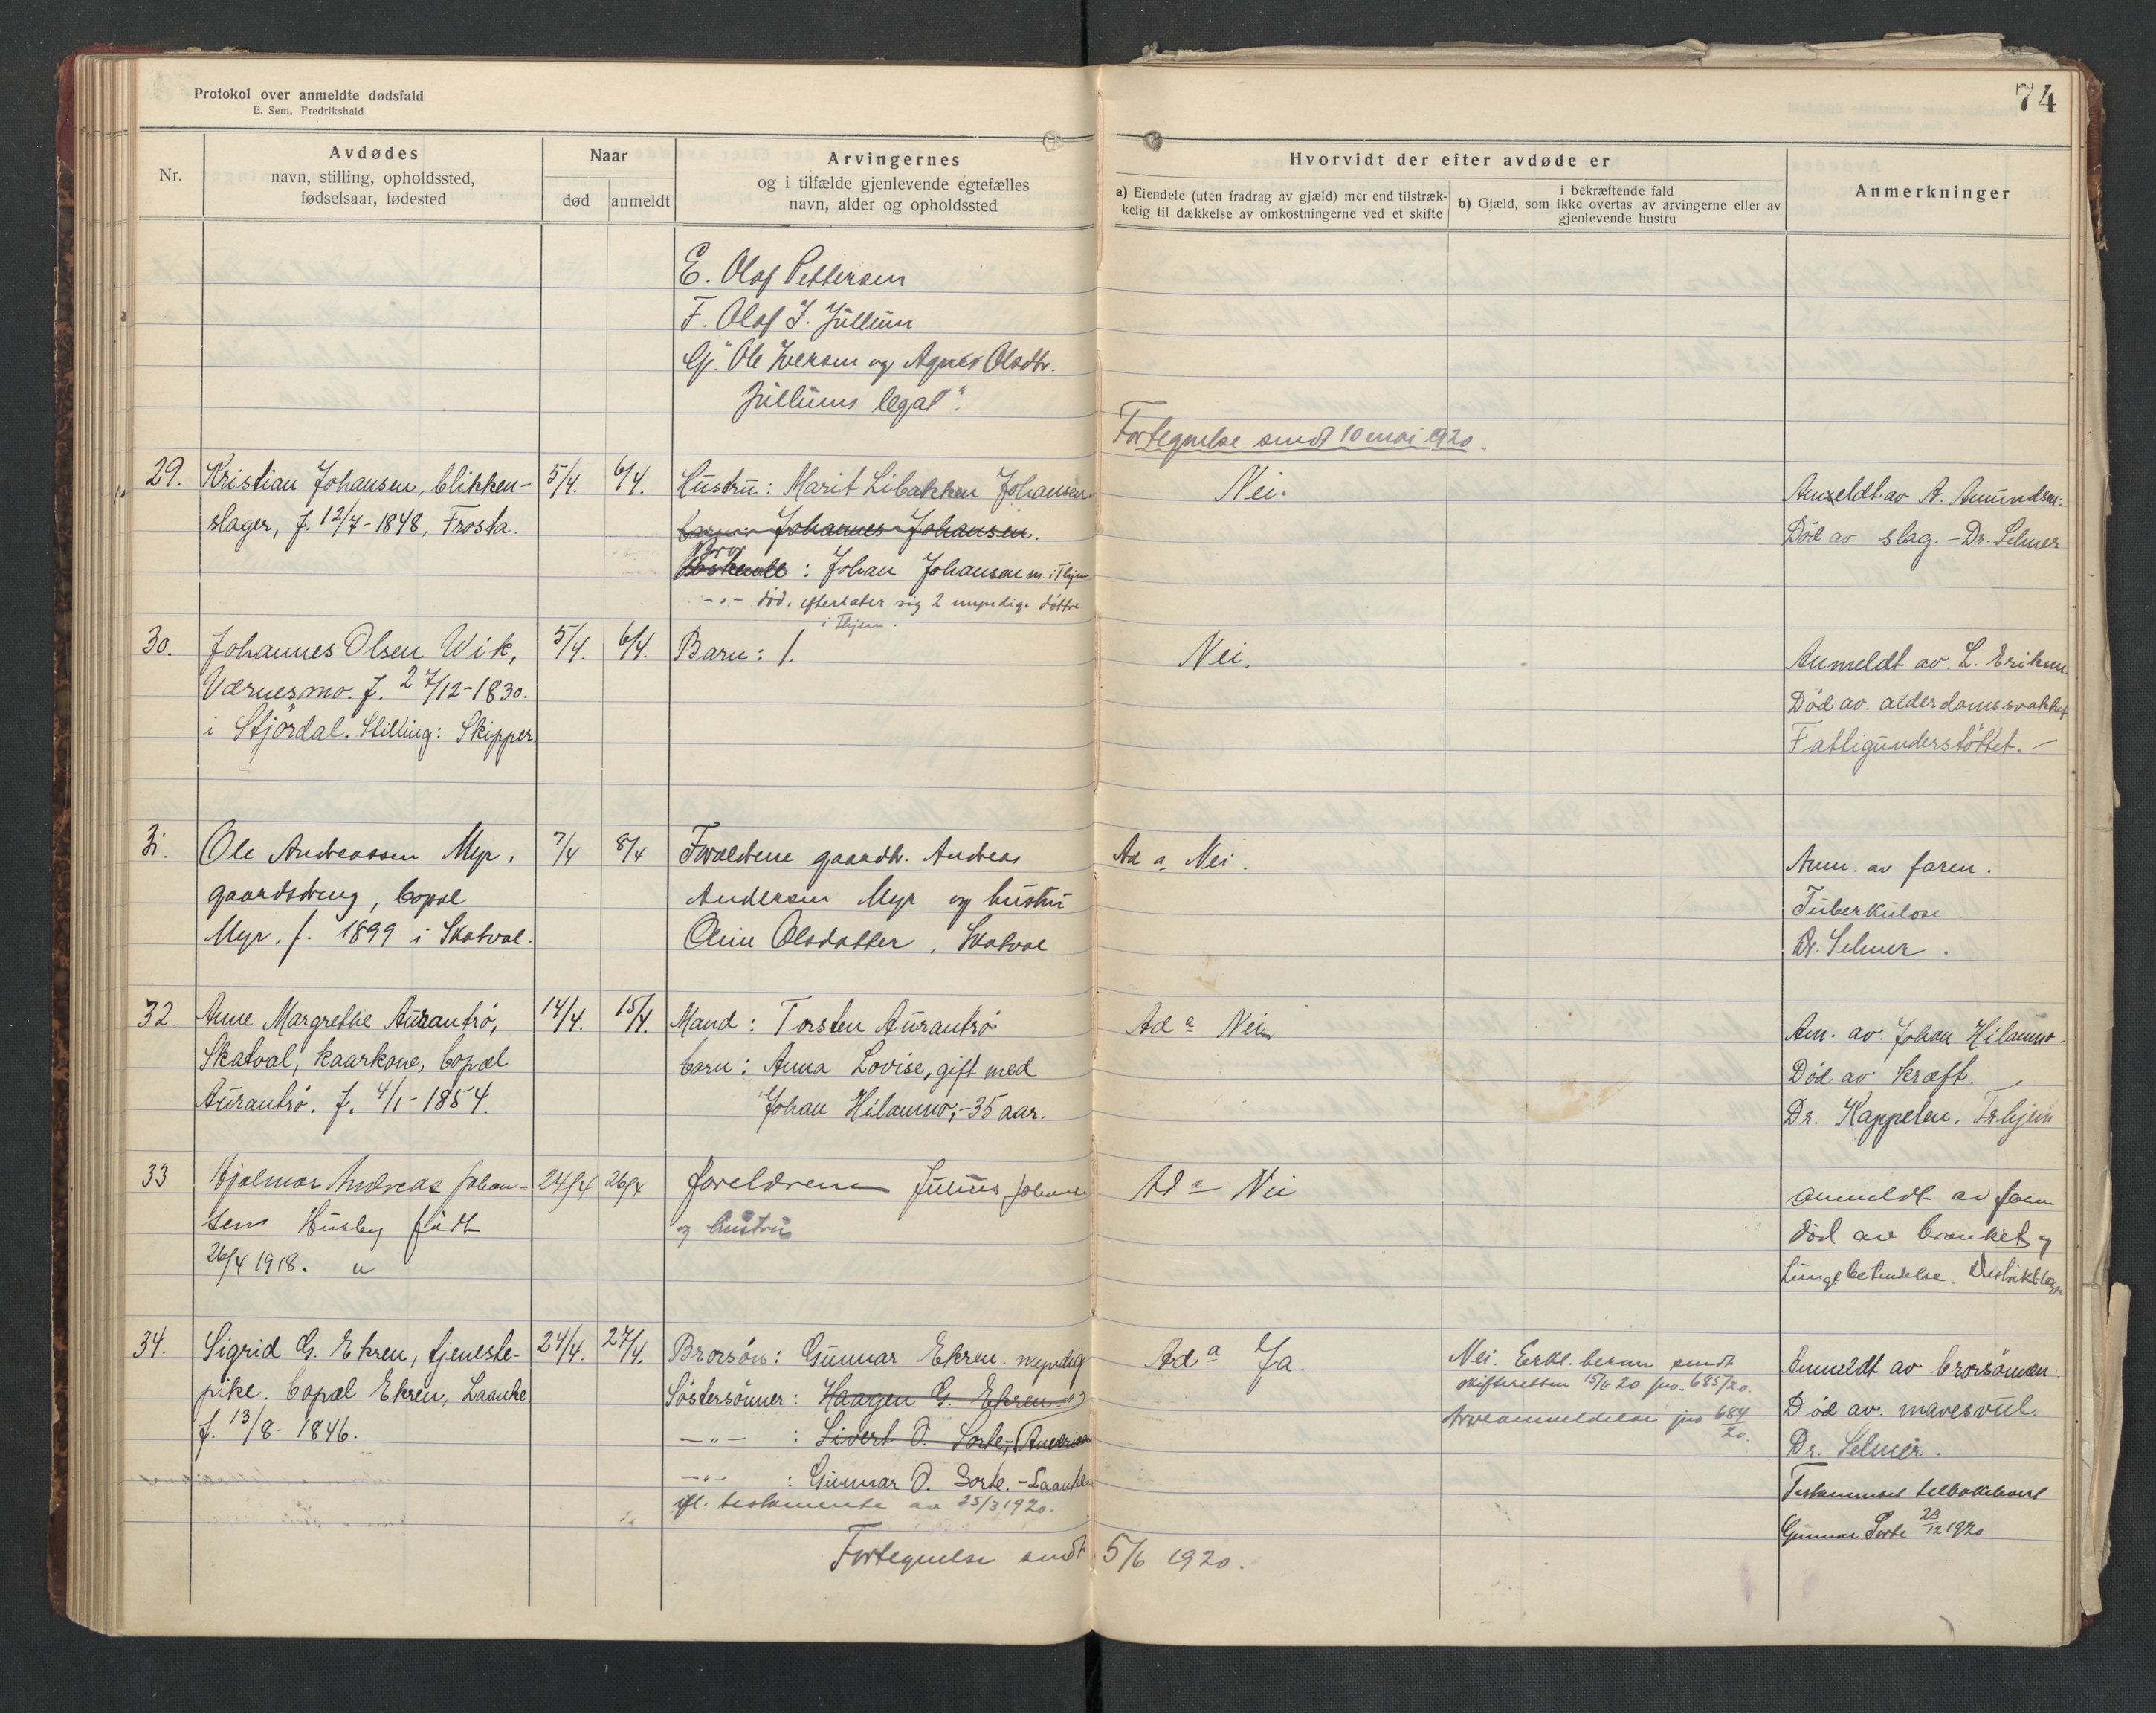 Protokol over anmeldte dødsfald
E. Sem, Fredrikshald
74
Nr.
Avdødes
navn, stilling, opholdssted,
fødselsaar, fødested
Naar
død
anmeldt
Arvingernes
og i tilfælde gjenlevende egtefælles
navn, alder og opholdssted
Hvorvidt der efter avdøde er
a) Eiendele (uten fradrag av gjæld) mer end tilstræk-
kelig til dækkelse av omkostningerne ved et skifte
i bekræftende fald
b) Gjæld, som ikke overtas av arvingerne eller av
gjenlevende hustru
Anmerkninger
E. Olaf Pettersen
F. Olaf J. Jullum
G. "Ole Iversen og Agnes Olsdtr.
Jullums legat".
Fortegnelse sendt 10 mai 1920.
29.
Kristian Johansen, blikken-
slager, f. 12/7-1848, Frosta.
5/4.
6/4.
Hustru: Marit Libakken Johansen
barn: Johannes Johansen.
Bror
: Johan Johansen m. i Thjem
-"- død, efterlater sig 2 umyndige døttre
i Thjem.
Nei.
Anmeldt av A. Amundsen.
Død av slag. - Dr. Selmer
30.
Johannes Olsen Wik,
Værnesmo. f. 27/12-1830.
i Stjørdal. Stilling: Skipper.
5/4.
6/4.
Barn: 1.
Nei.
Anmeldt av. L. Eriksen
Død av. alderdomssvakhet
Fattigunderstøttet. -
31.
Ole Andreassen Myr,
gaardsdreng, bopæl
Myr, f. 1899 i Skatval.
7/4
8/4
Forældrene gaardbr. Andreas
Andersen Myr og hustru
Oline Olsdatter, Skatval
Ad a Nei.
Anm. av faren.
Tuberkulose.
Dr. Selmer.
32.
Anne Margrethe Aurantrø,
Skatval, kaarkone, bopæl
Aurantrø. f. 4/1-1854.
14/4.
15/4.
Mand: Torsten Aurantrø
barn: Anna Lovise, gift med
Johan Hilammo, - 35 aar.
Ad a Nei
Am. av. Johan Hilammo.
Død av kræft.
Dr. Kappelen. Trhjem
33
Hjalmar Andreas Johan-
sen Husby født
26/4 1918.
24/4
26/4
foreldrene Julius Johansen
og hustru
Ad a Nei
anmeldt av faren
død av bronkit og
Lungebetendelse. Distriktslæge
34.
Sigrid G. Ekren, tjeneste-
pike. bopæl Ekren, Laanke
f. 13/8-1846.
24/4.
27/4.
Brorsøn: Gunnar Ekren. myndig
Søstersønner: Haagen G. Ekren
-"- : Sivert O. Sorte, Amerika
-"- : Gunnar O. Sorte. - Laanke
ifl. testamente av 25/3 1920.
Fortegnelse sendt 5/6 1920.
Ad a Ja.
Nei. Erkl. herom sendt
skifteretten 15/6 20 jno. 685/20.
Arveanmeldelse jno 684/20.
Anmeldt av brorsønnen
Død av. mavesvul.
Dr. Selmer.
Testamentet tilbakelevert
Gunnar Sorte 23/12 1920